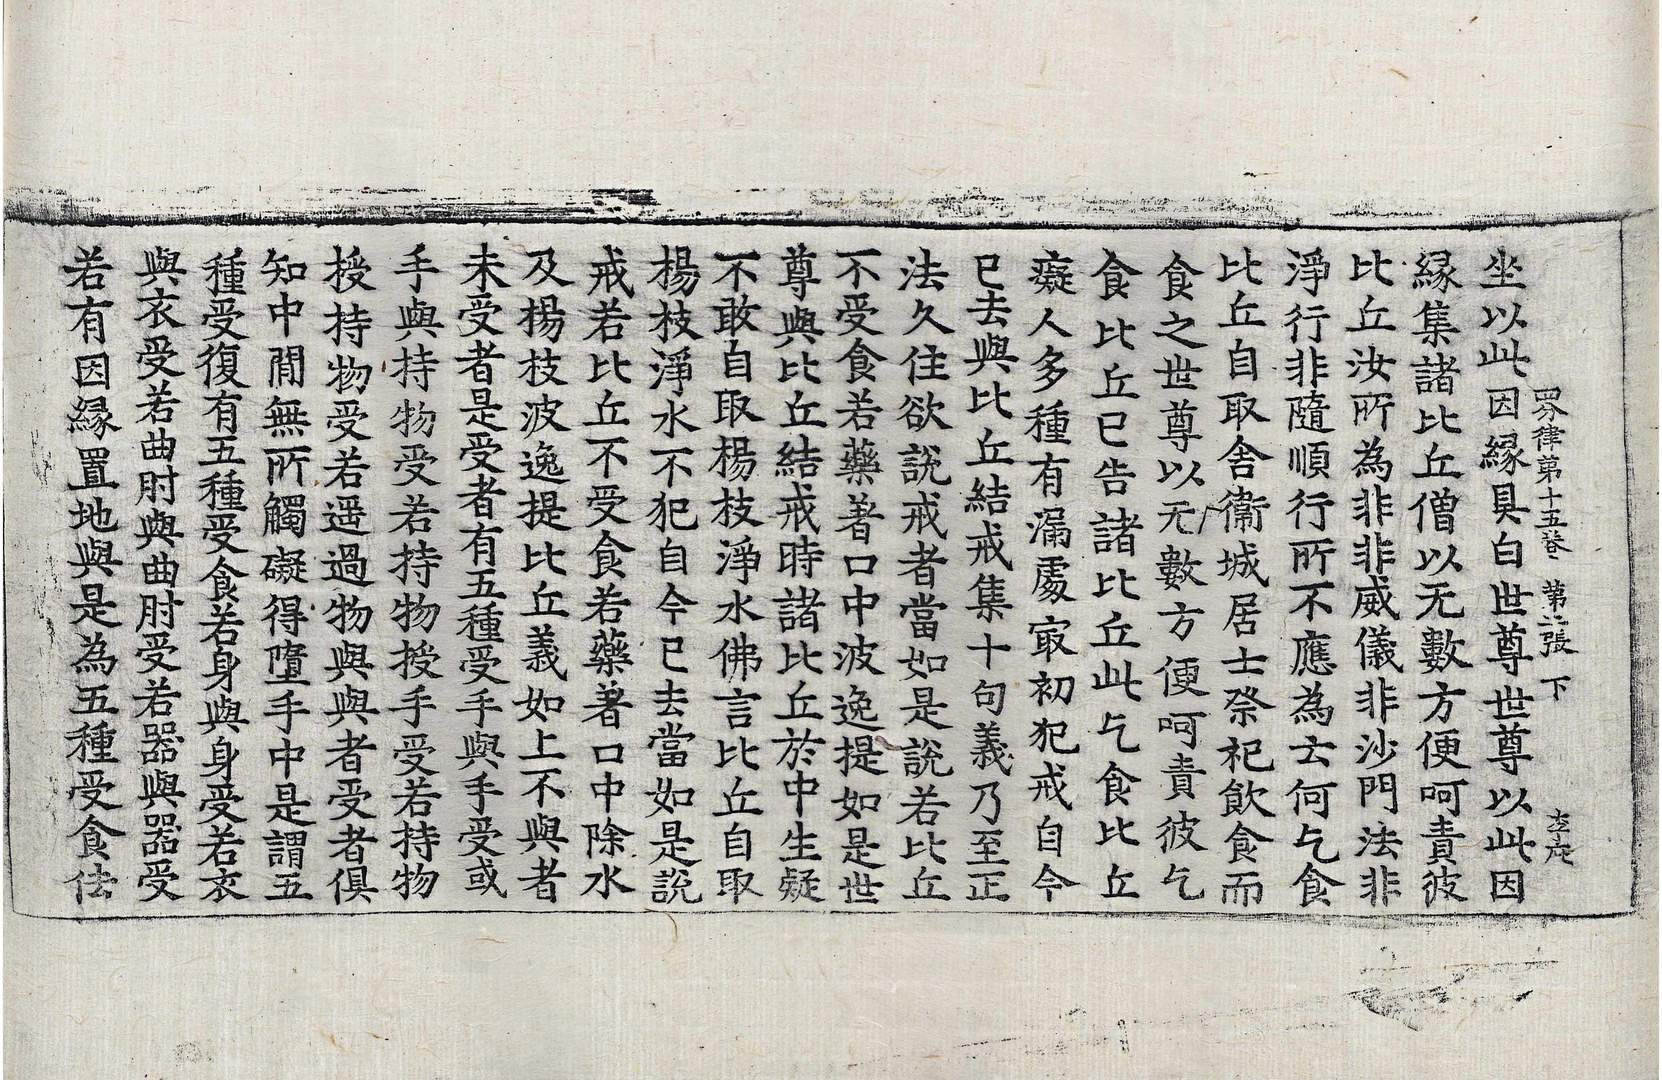 四分律第十五卷 第二張 下 李
坐以此因緣具白世尊世尊以此因
緣集諸比丘僧以无數方便呵責彼
比丘汝所為非非威儀非沙門法非
淨行非隨順行所不應為云何乞食
比丘自取舍衞城居士祭祀飲食而
食之世尊以无數方便呵責彼乞
食比丘已告諸比丘此乞食比丘
癡人多種有漏處㝡初犯戒自今
已去與比丘結戒集十句義乃至正
法久住欲說戒者當如是說若比丘
不受食若藥著口中波逸提如是世
尊與比丘結戒時諸比丘於中生疑
不敢自取楊枝淨水佛言比丘自取
楊枝淨水不犯自今已去當如是說
戒若比丘不受食若藥著口中除水
及楊枝波逸提比丘義如上不與者
未受者是受者有五種受手與手受或
手與持物受若持物授手受若持物
授持物受若遥過物與與者受者俱
知中間無所觸礙得墮手中是謂五
種受復有五種受食若身與身受若衣
與衣受若曲肘與曲肘受若器與器受
若有因緣置地與是為五種受食法